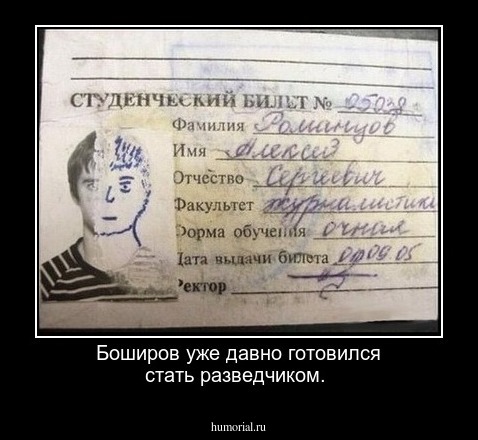 СТУДЕНЧЕСКИЙ БИЛЕТ № 05039
Фамилия Романцов
Имя Алексей
Отчество Сергеевич
Факультет журналистики
Форма обучения очная
Дата выдачи билета 09 05
Ректор
Боширов уже давно готовился
стать разведчиком.
humorial.ru